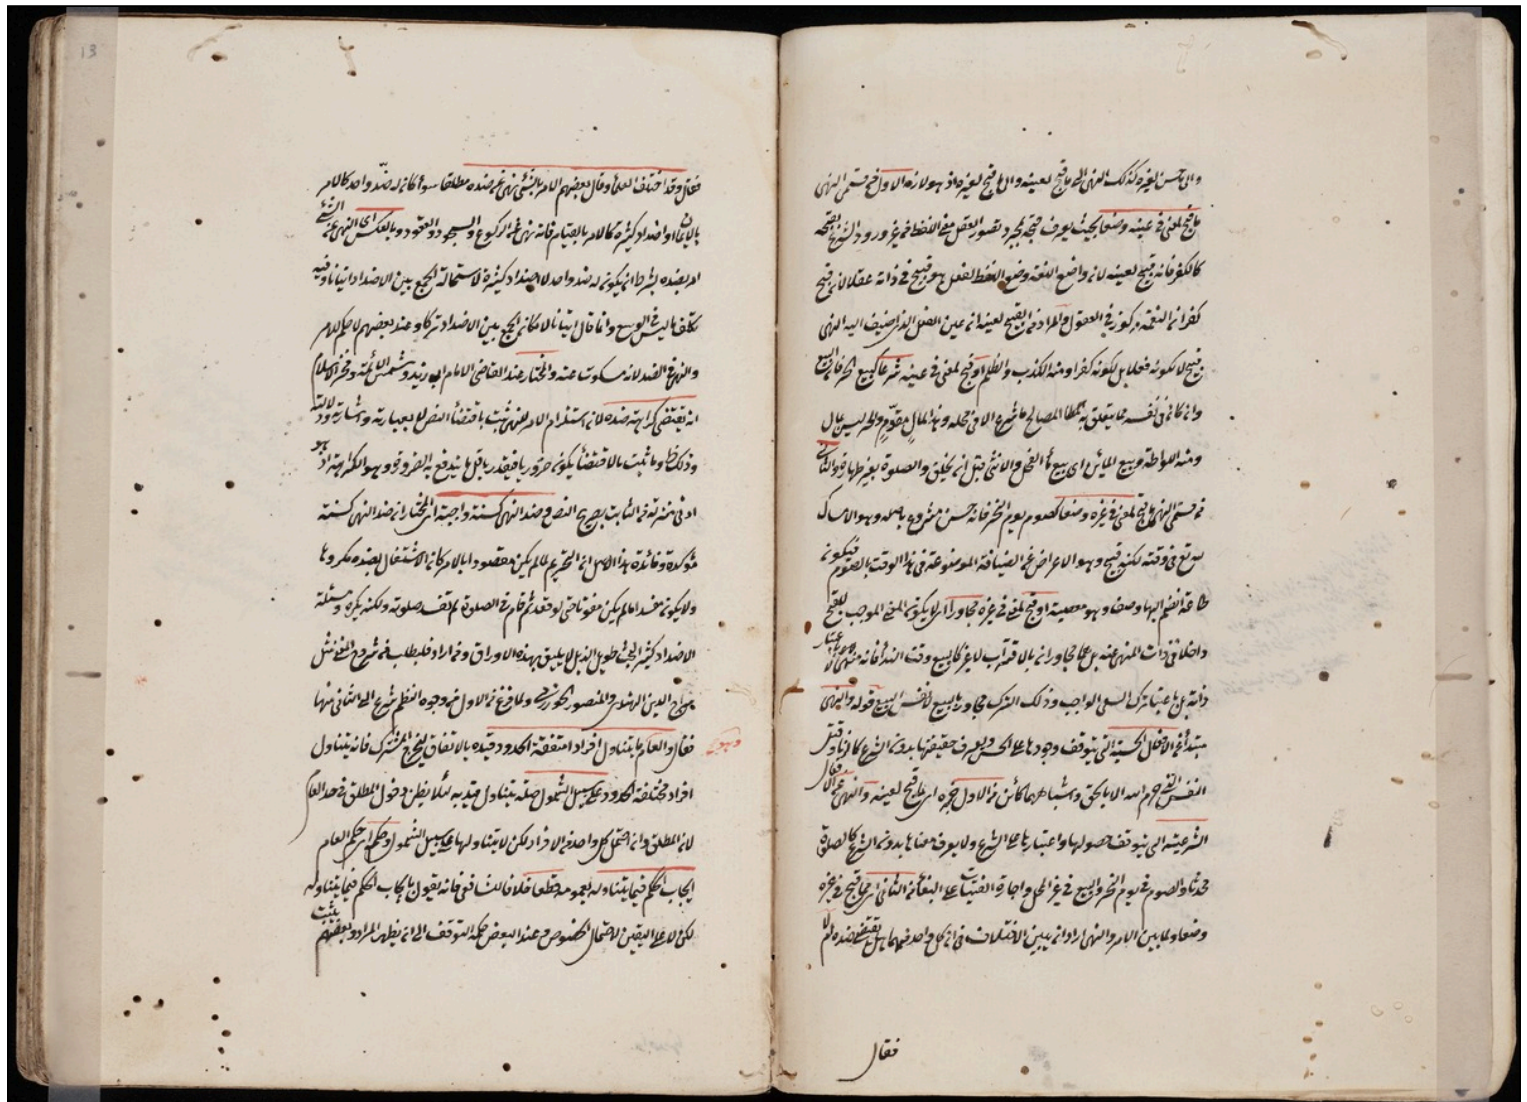 والى حسن لغيره كذلك النهي الى ما قبح لعينه والى ما قبح لغيره اذ هو لازمه الاول في قسمي النهي
ما قبح لمعنى في عينه وضعا بحيث يعرف قبحه بمجرد تصور العقل من اللفظ من غير ورود الشرع بقبحه
كالكفر فانه قبيح لعينه لان واضع اللغة وضع اللفظ لفعل هو قبيح في ذاته عقلا لان قبح
كفران النعمة مركوز في العقول والمراد من القبيح لعينه ان عين الفعل الذي اضيف اليه النهي
قبيح لا لكونه فعلا بل لكونه كفرا ومنه الكذب والظلم او قبح لمعنى في عينه شرعا كبيع الحر فان البيع
وان كان في نفسه مما يتعلق به المصالح ما شرع الا في محله وهذا المال متقوم والحر ليس بمال
ومنه اللواطة وبيع الملاقيح اي بيع ماء الفحل والانثى قبل ان يخلق والصلوة بغير طهارة والثاني
من قسمي النهي ما قبح لمعنى في غيره وصفا كصوم يوم النحر فانه حسن مشروع باصله وهو الامساك
لله تعالى في وقته لكنه قبيح وهو الاعراض عن الضيافة الموضوعة في هذا الوقت بالصوم فيكون
طاعة انضم اليها وصف وهو معصية او قبح لمعنى في غيره مجاورا اي لا يكون المعنى الموجب للقبح
داخلا في ذات المنهي عنه بل مجاورا كالبيع وقت النداء فانه منهي عنه لا باعتبار
ذاته بل باعتبار ترك السعي الواجب وذلك الترك مجاور بالبيع لا نفس البيع قوله والنهي
مبتدأ عن الافعال الحسية التي يتوقف وجودها على الحس ويعرف حقيقتها بدون الشرع كالزنا وقتل
النفس التي حرم الله الا بالحق واشباههما كائن من الاول خبره اي ما قبح لعينه والنهي عن الافعال
الشرعية التي يتوقف حصولها واعتبارها على الشرع ولا يعرف معناها بدون الشرع كالصلوة
محدثا والصوم في يوم النحر والبيع في غير المحل واجارة القينات على البغاء من الثاني اي مما قبح في غيره
وصفا ولما بين الامر والنهي اراد ان يبين الاختلاف في ان كل واحد منهما هل يقتضي ضده ام لا
فقال
فقال وقد اختلف العلماء وقال بعضهم الامر بالشئ نهي عن ضده مطلقا سواء كان له ضد واحد كالامر
بالايمان او اضداد كثيرة كالامر بالقيام فانه نهي عن الركوع والسجود والقعود وبالعكس اي النهي عن الشئ
امر بضده بشرط ان يكون له ضد واحد لا اضداد كثيرة لاستحالة الجمع بين الاضداد اتيانا وفيه
تكلف ما ليس في الوسع وانما قال اتيانا لامكان الجمع بين الاضداد تركا وعند بعضهم لا حكم للامر
والنهي في الضد لانه مسكوت عنه والمختار عند القاضي الامام ابي زيد وشمس الائمة وفخر الاسلام
انه يقتضي كراهة ضده لان استلزام الامر للنهي ثبت باقتضاء النص لا بعبارته واشارته ودلالته
وذلك ظ وما ثبت بالاقتضاء يكون ضروريا فيقدر باقل ما يندفع به الضرورة وهو الكراهة اذ هو
ادنى منزلة من الثابت بصريح النص وضد النهي كسنة واجبة اي المختار ان ضد النهي كسنة
مؤكدة وفائدة هذا الاصل ان التحريم لما لم يكن مقصودا بالامر كان الاشتغال بضده مكروها
ولا يكون مفسدا ما لم يكن مفوتا حتى لو قعد ثم قام في الصلوة لم تفسد صلوته ولكنه يكره ومسئلة
الاضداد كثير البحث طويل الذيل لا يليق بهذه الاوراق ومن اراد فليطلب من شروح المغني مثل
سراج الدين الهندي والمنصور الخوارزمي ولما فرغ من الاول من وجوه النظم شرع الى الثاني منها
فقال والعام ما يتناول افرادا متفقة الحدود قيده بالاتفاق ليخرج المشترك فانه يتناول
افراد مختلفة الحدود على سبيل الشمول صلة يتناول قيد به لئلا يظن دخول المطلق في حد العام
لان المطلق وان احتمل كل واحد من الافراد لكن لا يتناولها على سبيل الشمول وحكمه اي حكم العام
ايجاب الحكم فيما يتناوله بعمومه قطعا خلافا للشافعي فانه يقول بايجاب الحكم فيما يتناوله
لكن لا على اليقين لاحتمال الخصوص وعند البعض حكمه التوقف الى ان يظهر المراد وبعضهم يثبت